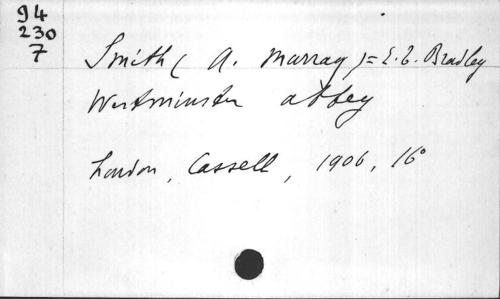 94
230
7
Smith ( A. Murray ) = E. T. Bradley
Westminster abbey
London, Cassell, 1906, 16°